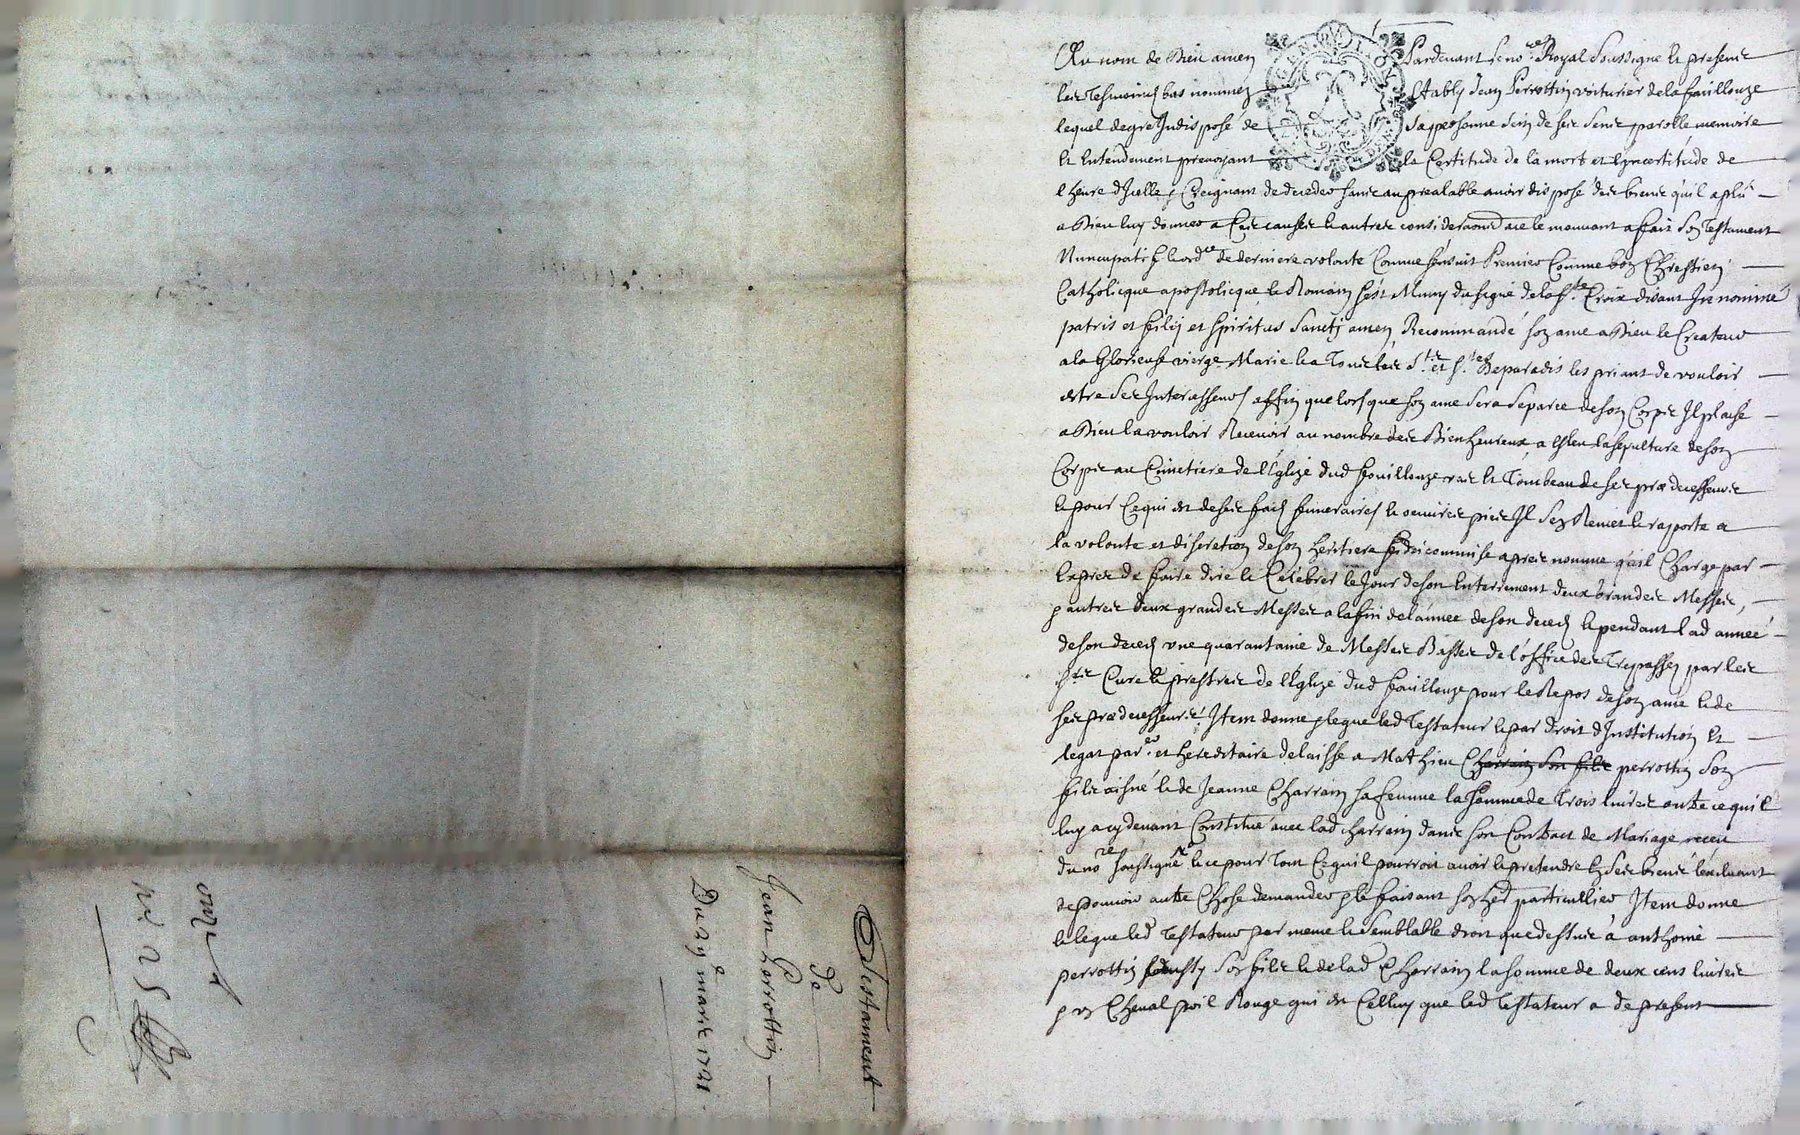 Testament
de
Jean Perrottin
Du 27e mars 1721
onze
no 25
Au nom de Dieu amen Pardevant le nore Royal soussigné et presens
les tesmoins bas nommez Estably Jean Perrottin voiturier de la fouillouze
lequel de gre Indisposé de sa personne sein de ses sens parolle memoire
et Entendement prevoyant la Certitude de la mort et lyncertitude de
lheure dIcelle, Creignant de deceder sans au prealable avoir disposé des biens quil a plû
a Dieu luy donner a Ces causes et autres considerations a ce le mouvant a fait son Testament
Nuncupatif et ordce de derniere volonté Comme sensuit Premier Comme bon Chrestien
Catholicque apostolicque et Romain sest Muny du signe de la ste Croix disant In nomine
patris et filij et spiritus sancti amen, Recommandé son ame a Dieu le Createur
a la Glorieuse vierge Marie et a Tous les Sts et Stes de paradis les priant de vouloir
estre ses Intercesseurs affin que lorsque son ame sera separée de son Corps Il plaise
a Dieu la vouloir Recevoir au nombre des Bienheureux, a esleu la sepulture de son
Corps au Cimetiere de lEglize dud fouillouze et Tombeau de ses prædecesseurs
et pour Ce qui est de ses frais funeraires et oeuvres pies Il sen Remet et raporte a
la volonté et discretion de son heritiere fideicommise apres nommé quil Charge par
Expres de faire dire et Celebrer le Jour de son Enterrement deux Grandes Messes,
autres deux grandes Messes a la fin de lannée de son deceds et pendant lad année
de son deceds une quarantaine de Messes Basses de loffice des Trepassez par les
srs Curé et prestres de lEglize dud fouillouze pour le Repos de son ame et de
ses prædecesseurs. Item donne et legue led Testateur et par droit dInstitution Et
legat parer et hereditaire delaisse a Mathieu Charrain son fils perrottin son
fils aisné et de Jeanne Charrain sa femme la somme de Trois livres outre ce quil
luy a cy devant Constitué avec lad Charrain dans son Contract de Mariage reçeu
du nore soussigné et ce pour Tout Ce quil pourroit avoir et pretendre En ses biens lexcluant
de pouvoir autre Chose demander et le faisant son her particullier Item donne
et legue led Testateur par meme et semblable droit que dessus à anthoine
perrottin son fils et de lad Charrain la somme de deux cens livres
un Cheval poil Rouge qui est Celluy que led Testateur a de present